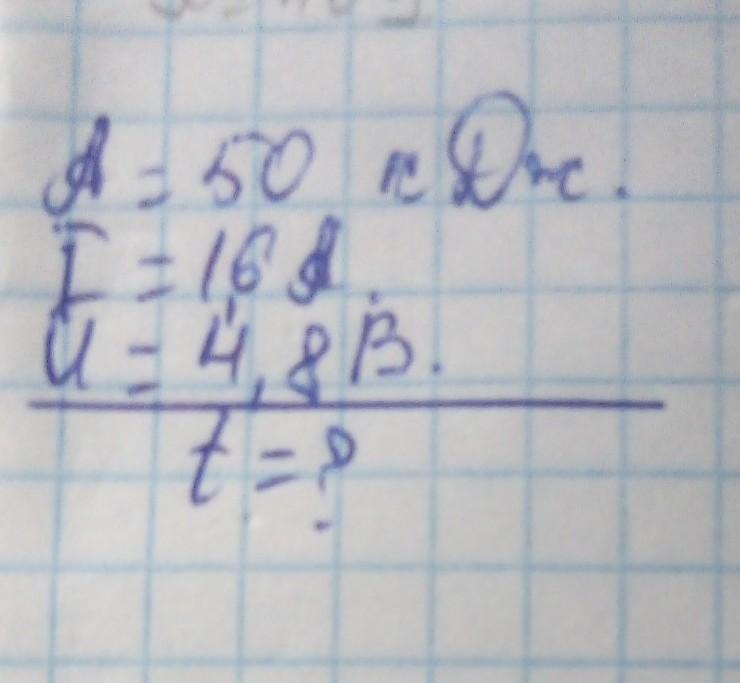 A = 50 кДж.
I = 16 А.
U = 4,8 В.
t = ?